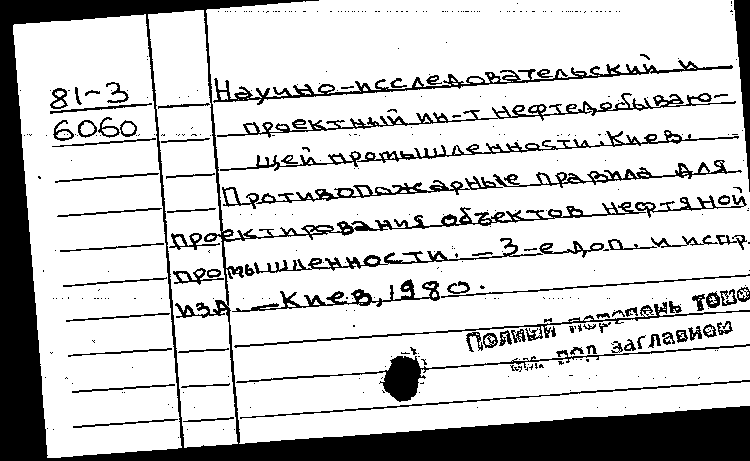 81-3
6060
Научно-исследовательский и
проектный ин-т нефтедобываю-
щей промышленности. Киев.
Противопожарные правила для
проектирования объектов нефтяной
промышленности. — 3-е доп. и испр.
изд. — Киев, 1980.
Полный перечень томо
см. под заглавием